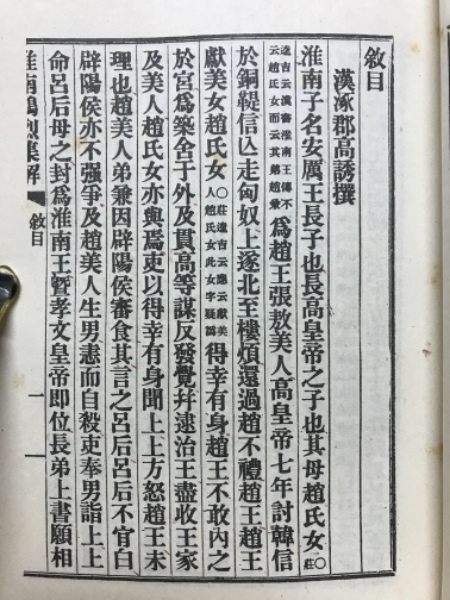 敘目
漢涿郡高誘撰
淮南子名安厲王長子也長高皇帝之子也其母趙氏女〇莊
逵吉云漢書淮南王傳不
云趙氏女而云其弟趙兼
爲趙王張敖美人高皇帝七年討韓信
於銅鞮信亡走匈奴上遂北至樓煩還過趙不禮趙王趙王
獻美女趙氏女
〇莊逵吉云應云獻美
人趙氏女此女字疑譌
得幸有身趙王不敢內之
於宮爲築舍于外及貫高等謀反發覺幷逮治王盡收王家
及美人趙氏女亦與焉吏以得幸有身聞上上方怒趙王未
理也趙美人弟兼因辟陽侯審食其言之呂后呂后不肎白
辟陽侯亦不强爭及趙美人生男恚而自殺吏奉男詣上上
命呂后母之封爲淮南王暨孝文皇帝即位長弟上書願相
淮南鴻烈集解
敘目
一
一